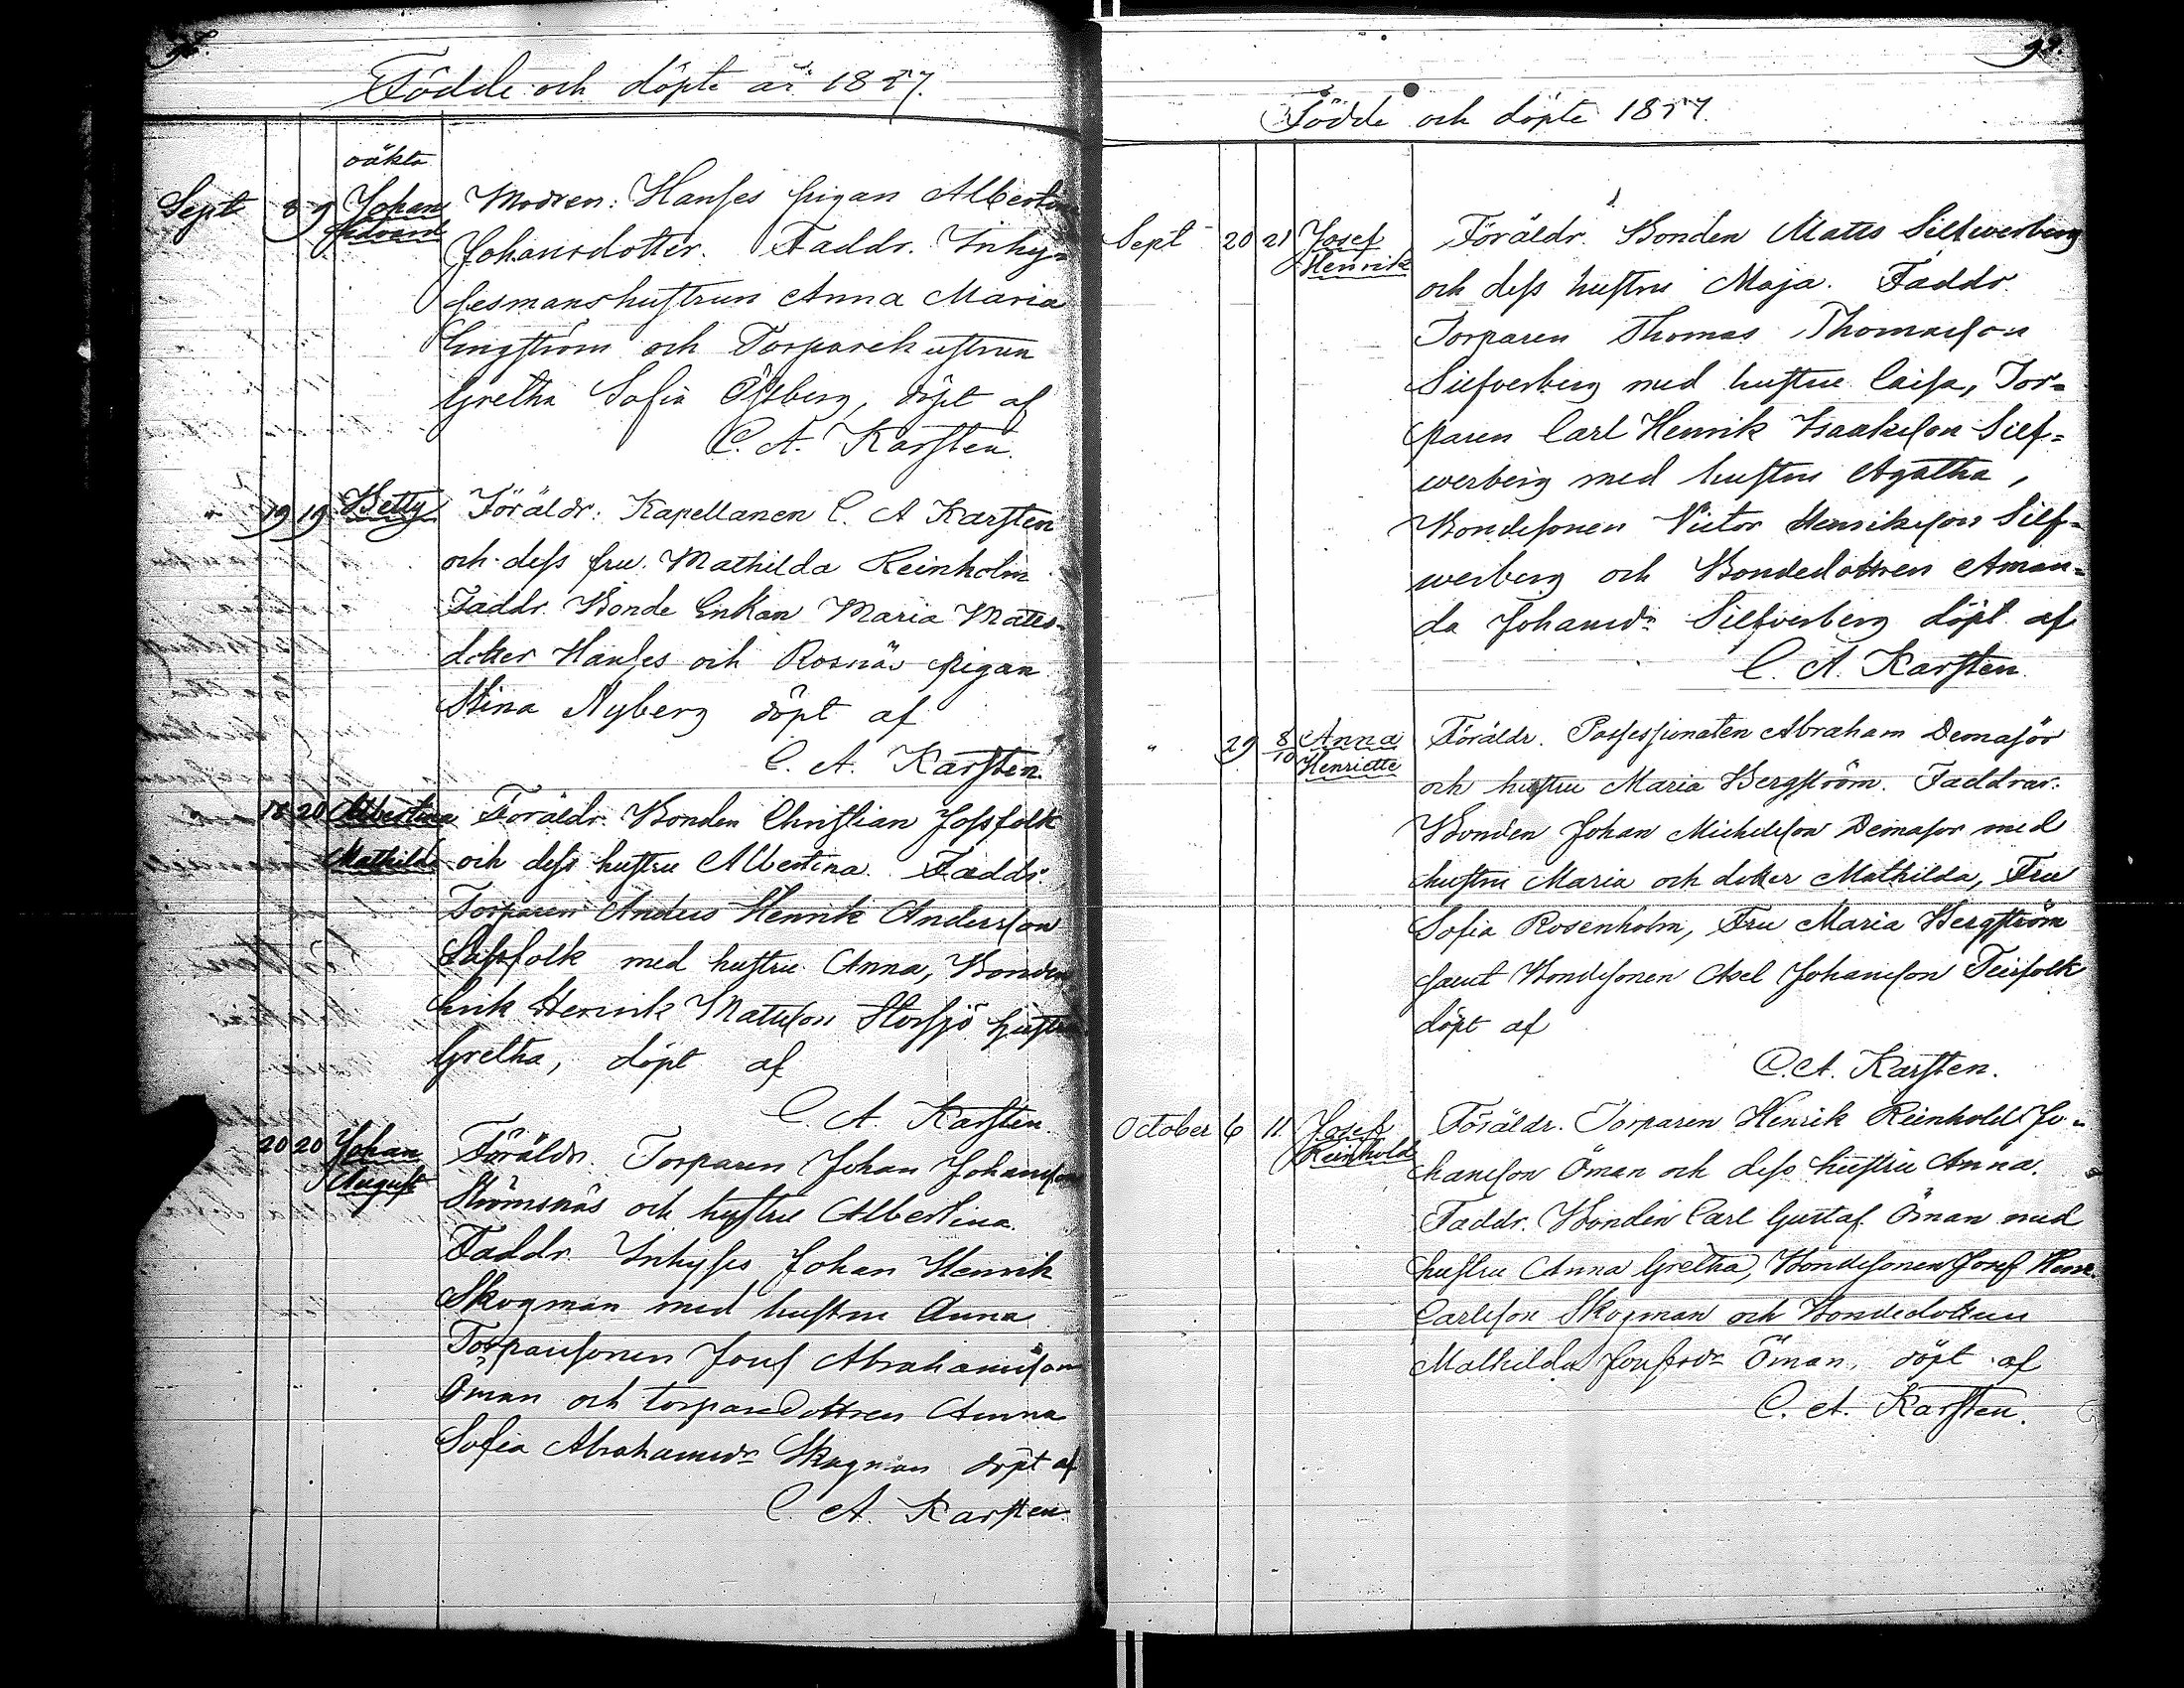 Födde och döpte år 1857.
oäkta
Sept 8 9 Johan Edvard Modren: Hanses pigan Albertina
Johansdotter. Faddr. Inhy=
sesmanshustrun Anna Maria
Engström och Torparehustrun
Gretha Sofia Östberg, döpt af
C. A. Karsten.
" 19 19 Betty Föräldr: Kapellanen C. A Karsten
och dess fru Mathilda Reinholm
Faddr. Bonde Enkan Maria Mats-
dotter Hanses och Rosnäs pigan
Stina Nyberg döpt af
C. A. Karsten.
18 20 Albertina Mathilda Föräldr. Bonden Christian Jossfolk
och dess hustru Albertina. Faddr.
Torparen Anders Henrik Andersson
Lassfolk med hustru Anna, Bonden
Erik Henrik Matsson Storsjö hustru
Gretha, döpt af
C. A. Karsten.
20 20 Johan August Föräldr. Torparen Johan Johansson
Strömsnäs och hustru Albertina.
Faddr. Inhyses Johan Henrik
Skogman med hustru Anna
Torparesonen Josef Abrahamsson
Öman och torparedottren Anna
Sofia Abrahamsdr Skogman döpt af
C. A. Karsten.
Födde och döpte 1857.
Sept 20 21 Josef Henrik Föräldr. Bonden Matts Silfwerberg
och dess hustru Maja. Faddr.
Torparen Thomas Thomasson
Silfverberg med hustru Caisa, Tor=
paren Carl Henrik Isaaksson Silf=
werberg med hustru Agatha,
Bondesonen Victor Henriksson Silf=
werberg och Bondedottren Aman=
da Johansdr Silfverberg döpt af
C. A. Karsten.
" 29 8/10 Anna Henriette Föräldr. Possessionaten Abraham Demasör
och hustru Maria Bergström. Faddrar:
Bonden Johan Michelsson Demasör med
hustru Maria och dotter Mathilda, Fru
Sofia Rosenholm, Fru Maria Bergström
samt Bondesonen Axel Johansson Teirfolk
döpt af
C. A. Karsten.
October 6 11. Josef Reinhold Föräldr. Torparen Henrik Reinhold Jo=
hansson Öman och dess hustru Anna.
Faddr. Bonden Carl Gustaf Öman med
hustru Anna Gretha, Bondesonen Josef Henr.
Carlsson Skogman och Bondedottren
Mathilda Josefsdr Öman, döpt af
C. A. Karsten.